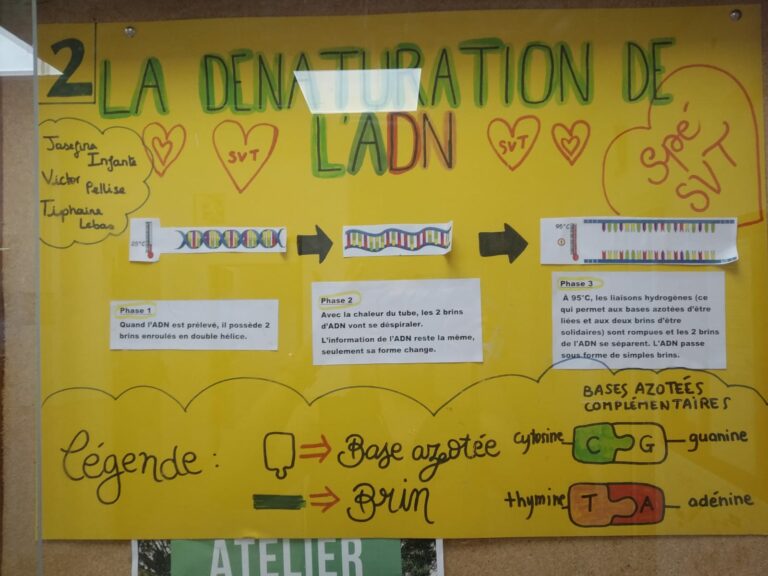 2
LA DENATURATION DE
L'ADN
Josefina
Infante
Victor
Pellise
Tiphaine
Lebas
SVT
SVT
Spé
SVT
25°C
95°C
Phase 1
Quand l'ADN est prélevé, il possède 2
brins enroulés en double hélice.
Phase 2
Avec la chaleur du tube, les 2 brins
d'ADN vont se déspiraler.
L'information de l'ADN reste la même,
seulement sa forme change.
Phase 3
À 95°C, les liaisons hydrogènes (ce
qui permet aux bases azotées d'être
liées et aux deux brins d'être
solidaires) sont rompues et les 2 brins
de l'ADN se séparent. L'ADN passe
sous forme de simples brins.
Légende :
Base azotée
Brin
BASES AZOTEÉS
COMPLÉMENTAIRES
cytosine C G guanine
thymine T A adénine
ATELIER